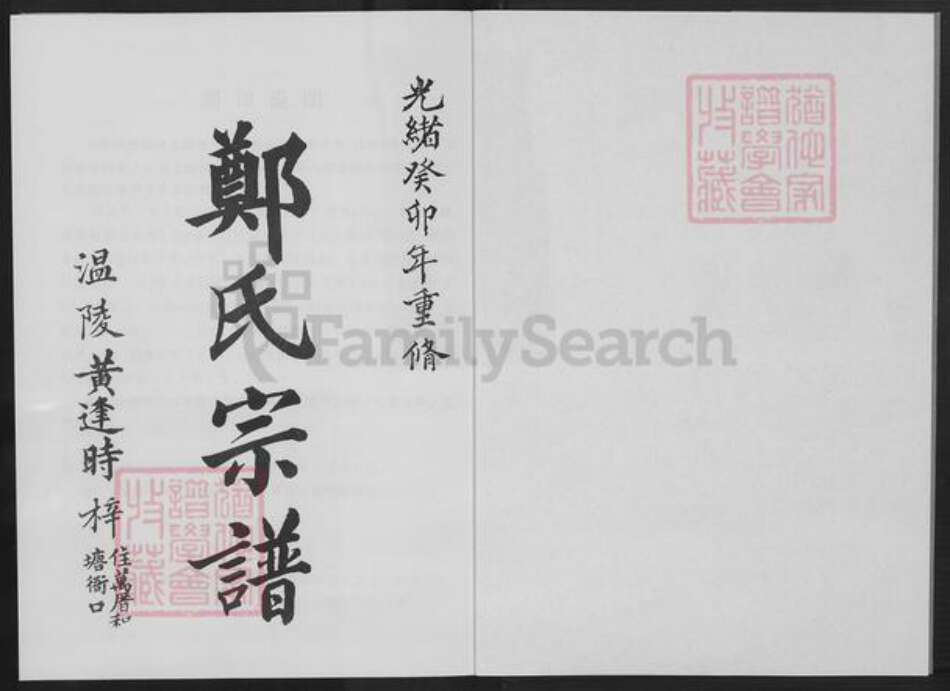 光緒癸卯年重脩
鄭氏宗譜
温陵黃逢時梓
住萬厝和
塘衙口
猶他家
譜學會
收藏
FamilySearch
猶他家
譜學會
收藏